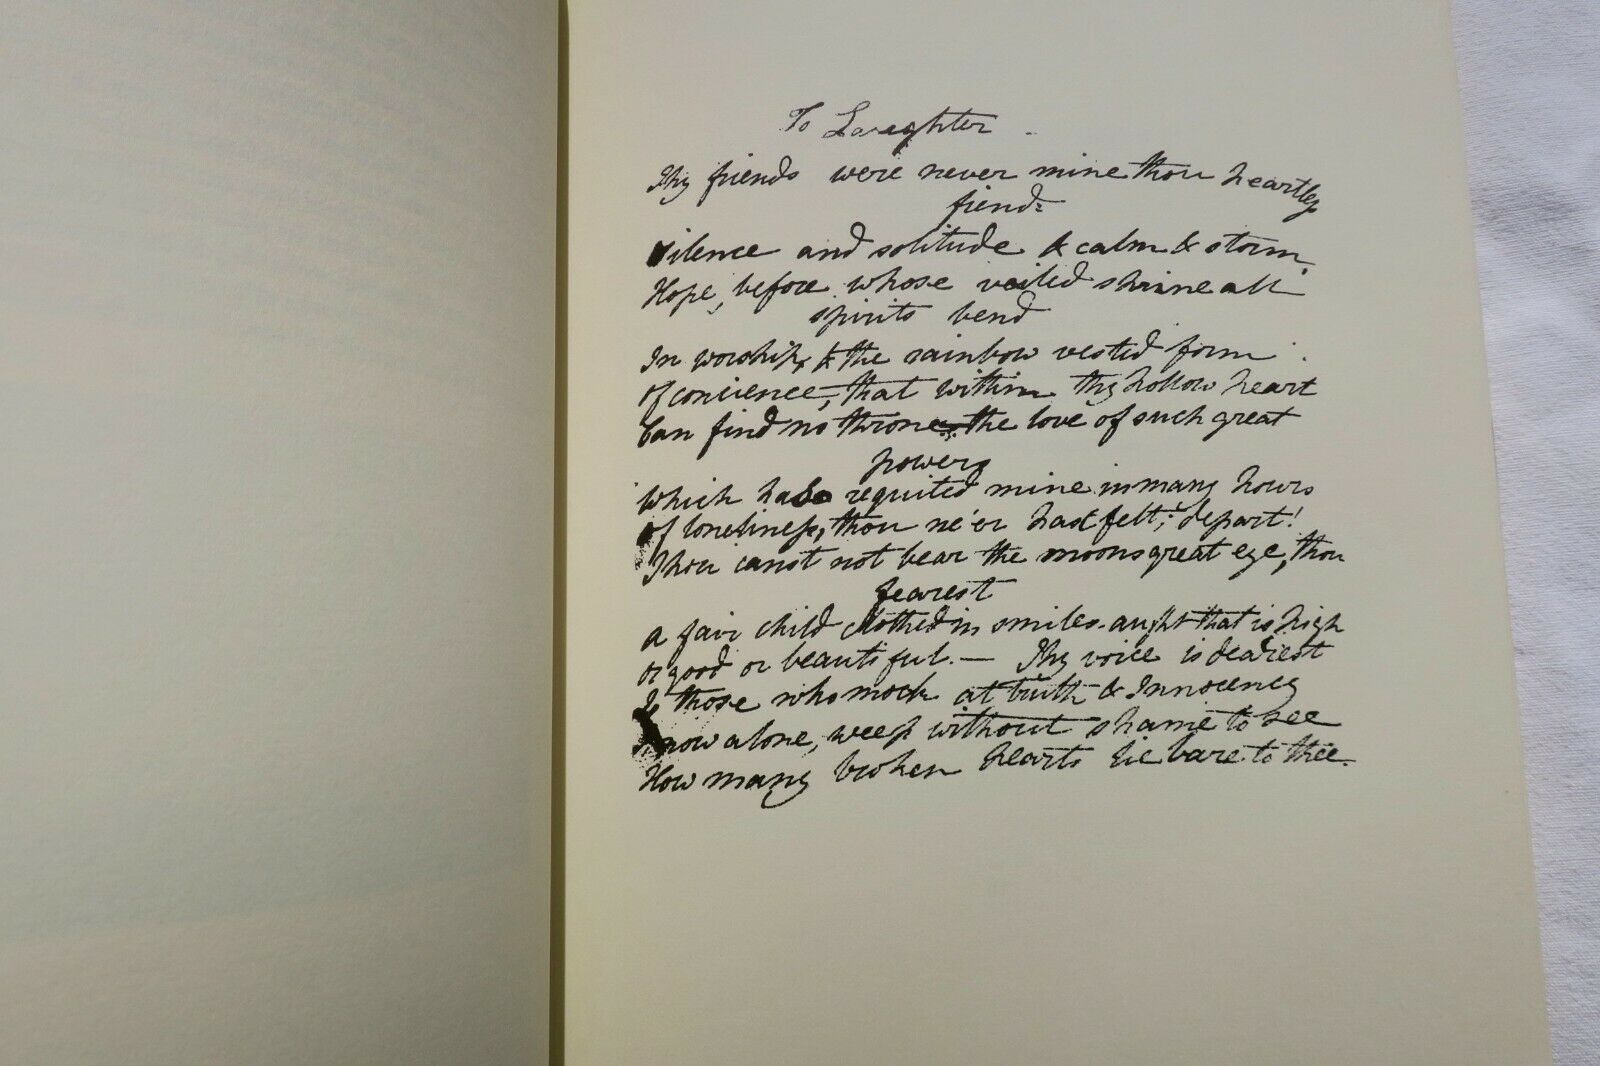 To Laughter.
Thy friends were never mine thou heartless
fiend:
Silence and solitude & calm & storm,
Hope, before whose veiled shrine all
spirits bend
In worship, & the rainbow vested form
Of concience, that within thy hollow heart
Can find no throne, the love of such great
powers
Which has requited mine in many hours
Of loneliness, thou ne'er hast felt; depart!
Thou canst not bear the moons great eye, thou
fearest
A fair child clothed in smiles - aught that is high
or good or beautiful. — Thy voice is dearest
To those who mock at truth & Innocency
I now alone, weep without shame to see
How many broken hearts lie bare to thee.